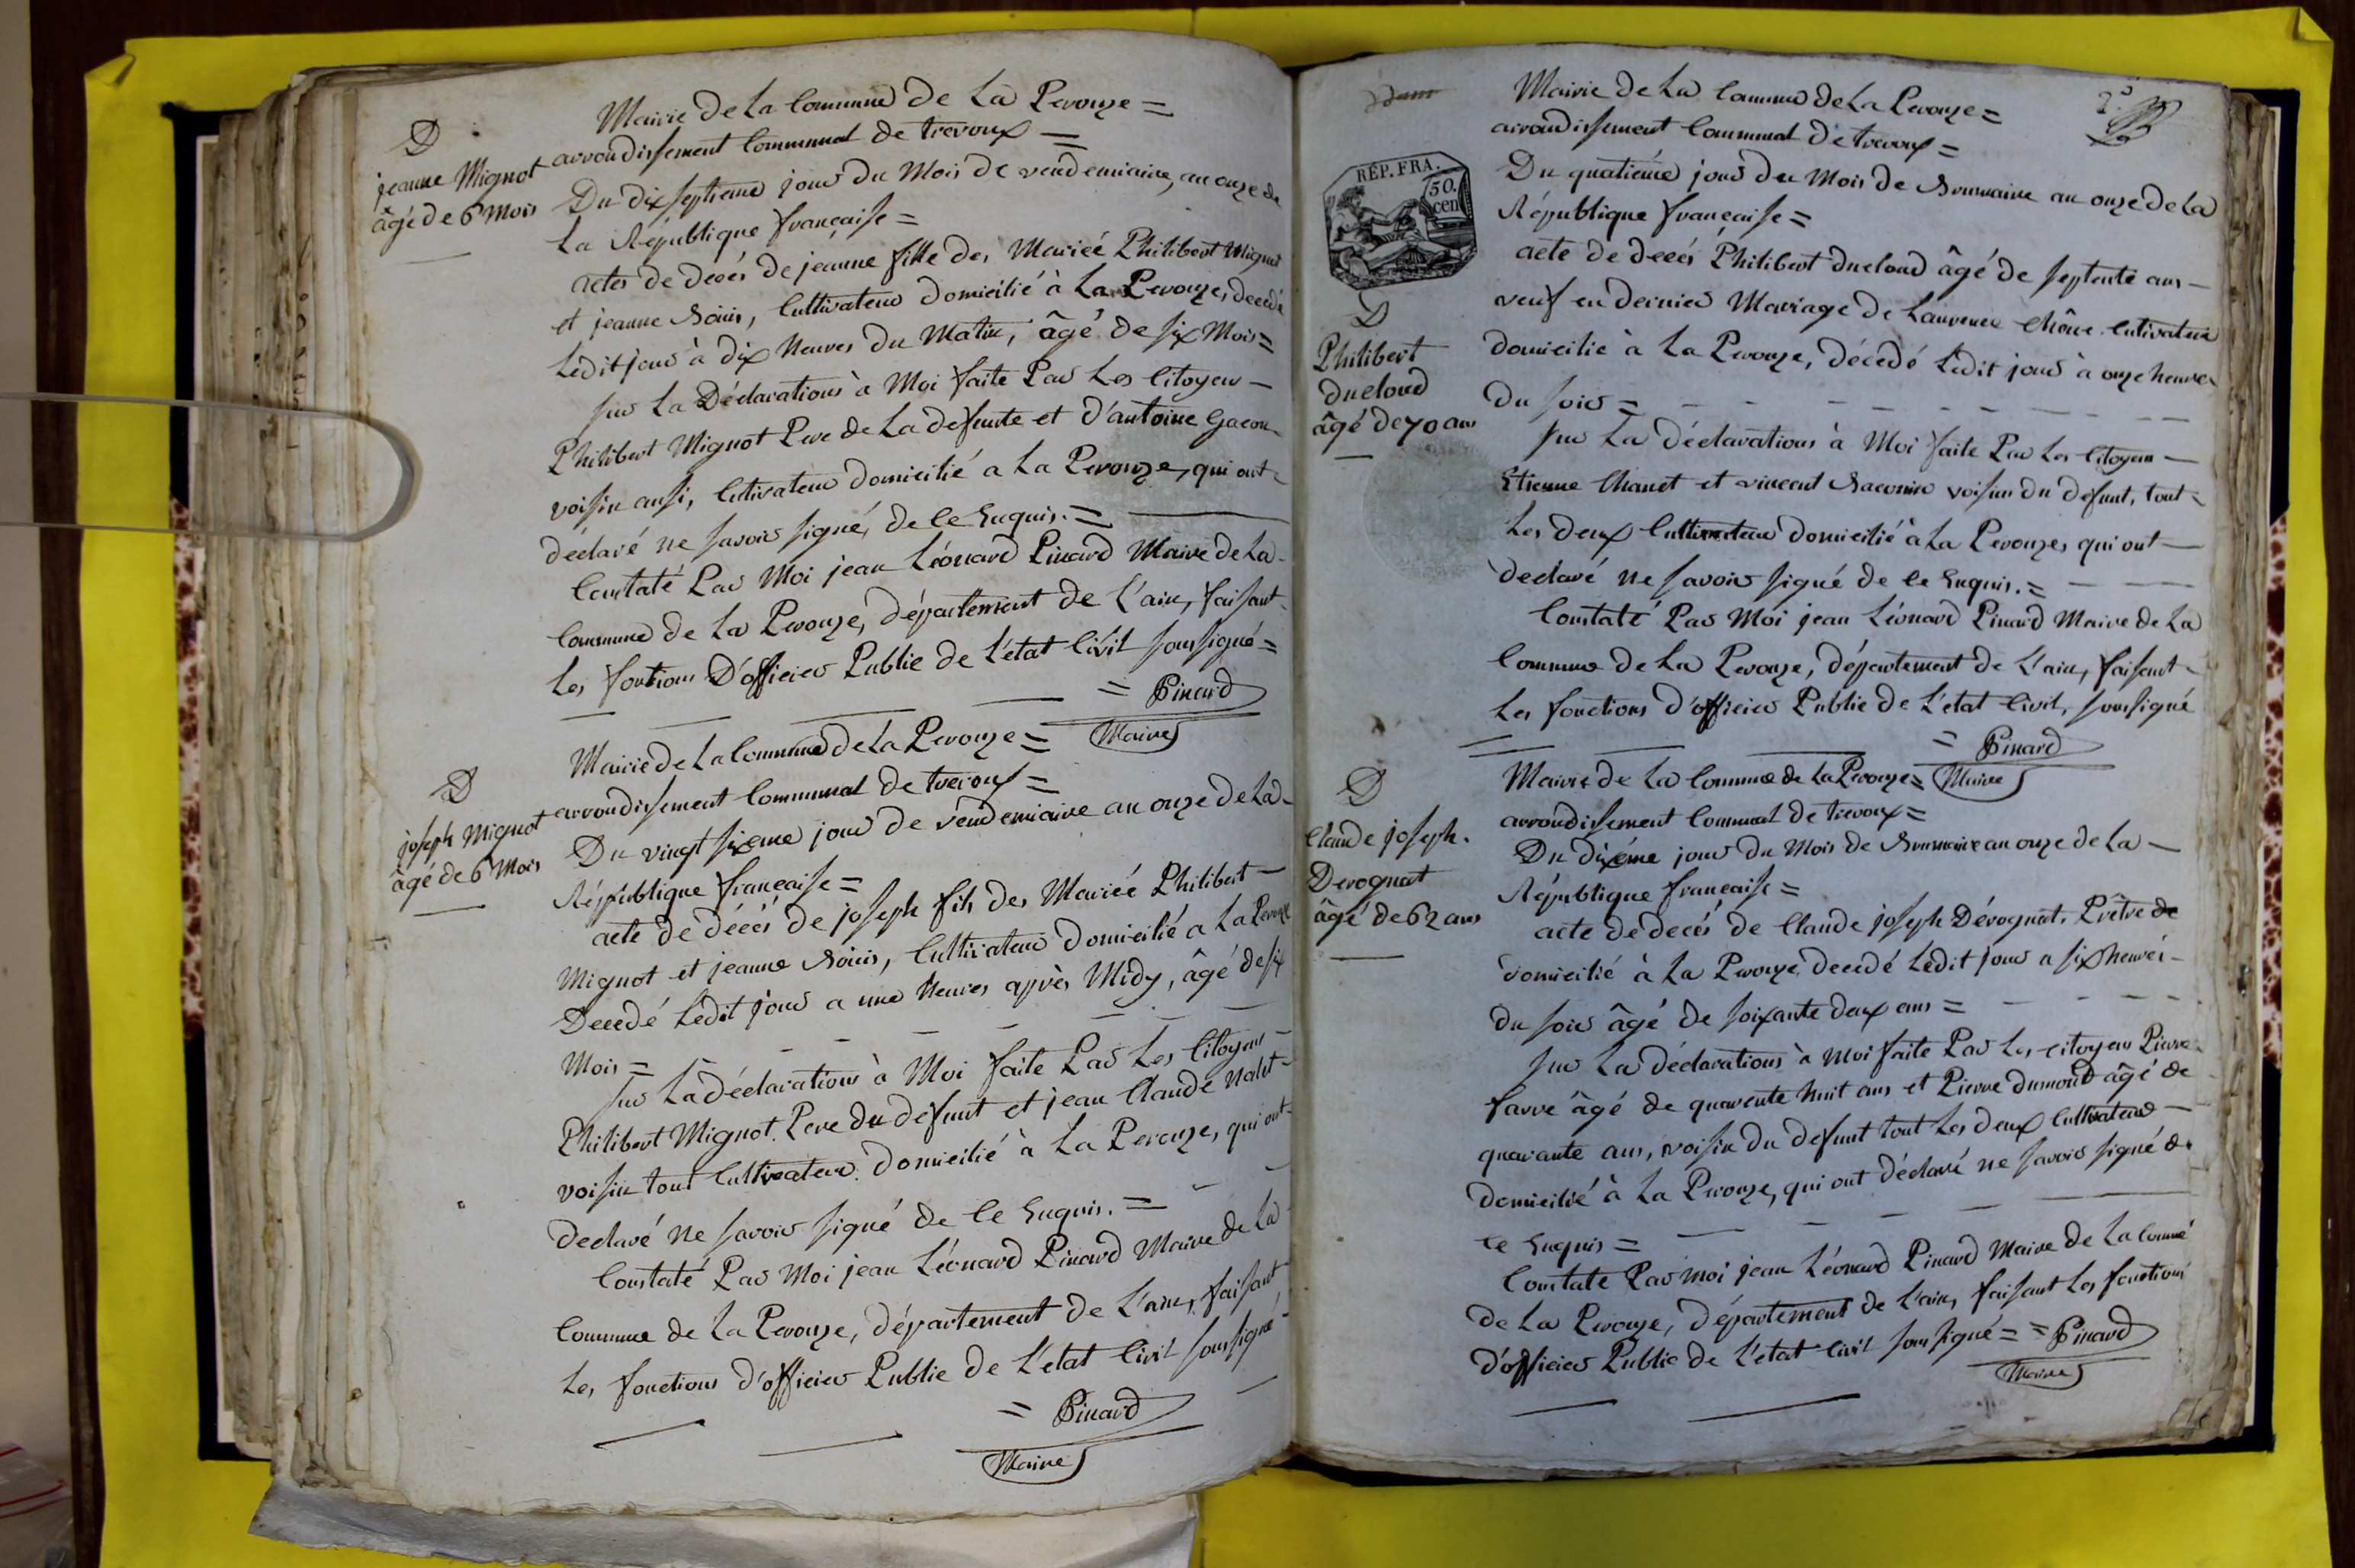 D
jeanne Mignot
âgé de 6 Mois
Mairie de La Commune de La Perouze =
arrondissement Communal de trevoux =
Du dix septieme jour du Mois de vendemiaire, an onze de
La République française =
actes de decés de jeanne fille des Mariéé Philibert Mignot
et jeanne, Cultivateur domicilié à La Perouze, decedé
Ledit jour à dix heures du Matin, âgé de six Mois =
sur La Déclarations à Moi faite Par Les Citoyens —
Philibert Mignot Pere de La defunte et d'antoine Gacon
voisin ausi, Cultivateur domicilié a La Perouze, qui ont =
déclaré ne savoir signé, de Ce Enquis. =
Constaté Par Moi jean Léonard Pinard Maire de La
Commune de La Perouze, département de L'ain, faisant
Les fontions D'officier Public de L'état Civil soussigné =
= Pinard
Maire
D
joseph Mignot
âgé de 6 Mois
Mairie de La Commune de La Perouze =
arrondissement Communal de trevoux =
Du vingt sixeme jour de vendemiaire an onze de La
République française =
acte de décés de joseph fils des Mariéé Philibert —
Mignot et jeanne, Cultivateur domicilié a La Perouze
Decedé Ledit jour a une heures après Midy, âgé de six
Mois =
sur La déclarations à Moi faite Par Les Citoyens —
Philibert Mignot. Pere du defunt et jean Claude
voisin tout Cultivateur. domicilié à La Perouze, qui ont
declaré ne savoir signé de Ce Enquis. =
Constaté Par Moi jean Léonard Pinard Maire de La
Commune de La Perouze, département de L'ain, faisant
Les fonctions d'officier Public de L'etat Civil soussigné
= Pinard
Maire
RÉP. FRA.
50.
cen
D
Philibert
Ducloud
âgé de 70 ans
Mairie de La Commune de La Perouze =
arrondissement Communal de trevoux =
Du quatiéme jour du Mois de Brumaire an onze de La
République française =
acte de decés Philibert ducloud âgé de septente ans —
veuf en dernier Mariage de Laurence Chône Cutivateur
domicilié à La Perouze, décedé Ledit jour à onze heures
du soir =
sur La déclarations à Moi faite Par Les Citoyens —
Etienne Chanet et vincent voisin du defunt, tout =
Les deux Cultivateur domicilié à La Perouzes qui ont —
declaré ne savoir signé de Ce Enquis. =
Constaté Par Moi jean Léonard Pinard Maire de La
Commune de La Perouze, département de L'ain, faisant
Les fonctions d'officier Public de L'etat Civil, soussigné
= Pinard
Maire
D
Claude joseph.
Derognat
âgé de 62 ans
Mairie de La Commune de La Perouze =
arrondissement Communal de trevoux =
Du dixéme jour du Mois de Brumaire an onze de La —
République française =
acte de decés de Claude joseph Dérognat. Prêtre de
domicilié à La Perouze, decedé Ledit jour a six heures —
du soir âgé de soixante deux ans =
sur La déclarations à Moi faite Par Les citoyens Pierre
favre âgé de quarente huit ans et Pierre dumont âgé de
quarante ans, voisin du defunt tout Les deux Cultivateur —
domicilié à La Perouze, qui ont déclaré ne savoir signé de
Ce Enquis =
Constaté Par moi jean Léonard Pinard Maire de La Comné
de La Perouze, département de L'ain, faisant Les fonctions
d'officier Public de L'etat Civil soussigné = = Pinard
Maire